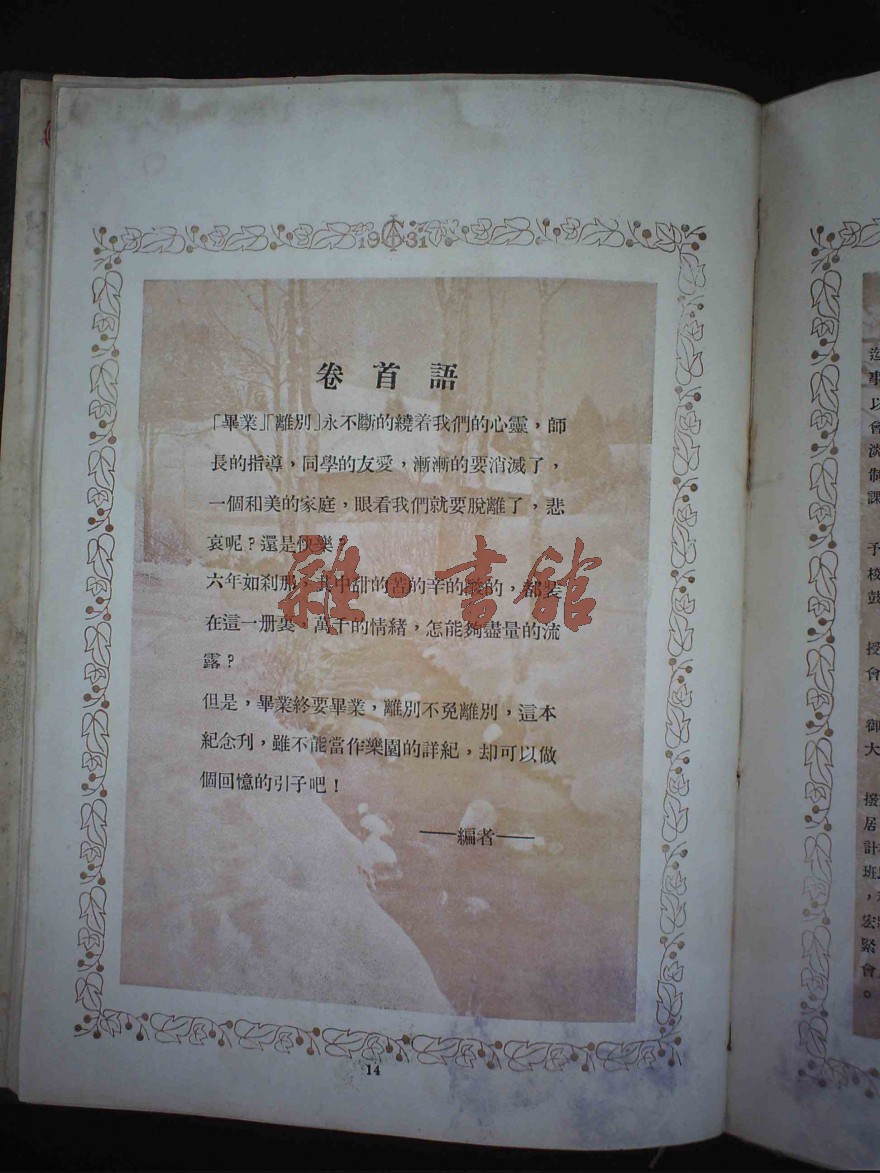 1931
卷首語
「畢業」「離別」永不斷的繞着我們的心靈，師
長的指導，同學的友愛，漸漸的要消滅了，
一個和美的家庭，眼看我們就要脫離了，悲
哀呢？還是快樂？
六年如刹那，其中甜的苦的辛的酸的，都裝
在這一册裏，萬千的情緒，怎能夠盡量的流
露？
但是，畢業終要畢業，離別不免離別，這本
紀念刋，雖不能當作樂園的詳紀，却可以做
個回憶的引子吧！
——編者——
14
雜·書館
事
以
會
淡
課
予
校
鼓
授
會
御
大
撥
居
計
班
宏
緊
會
。